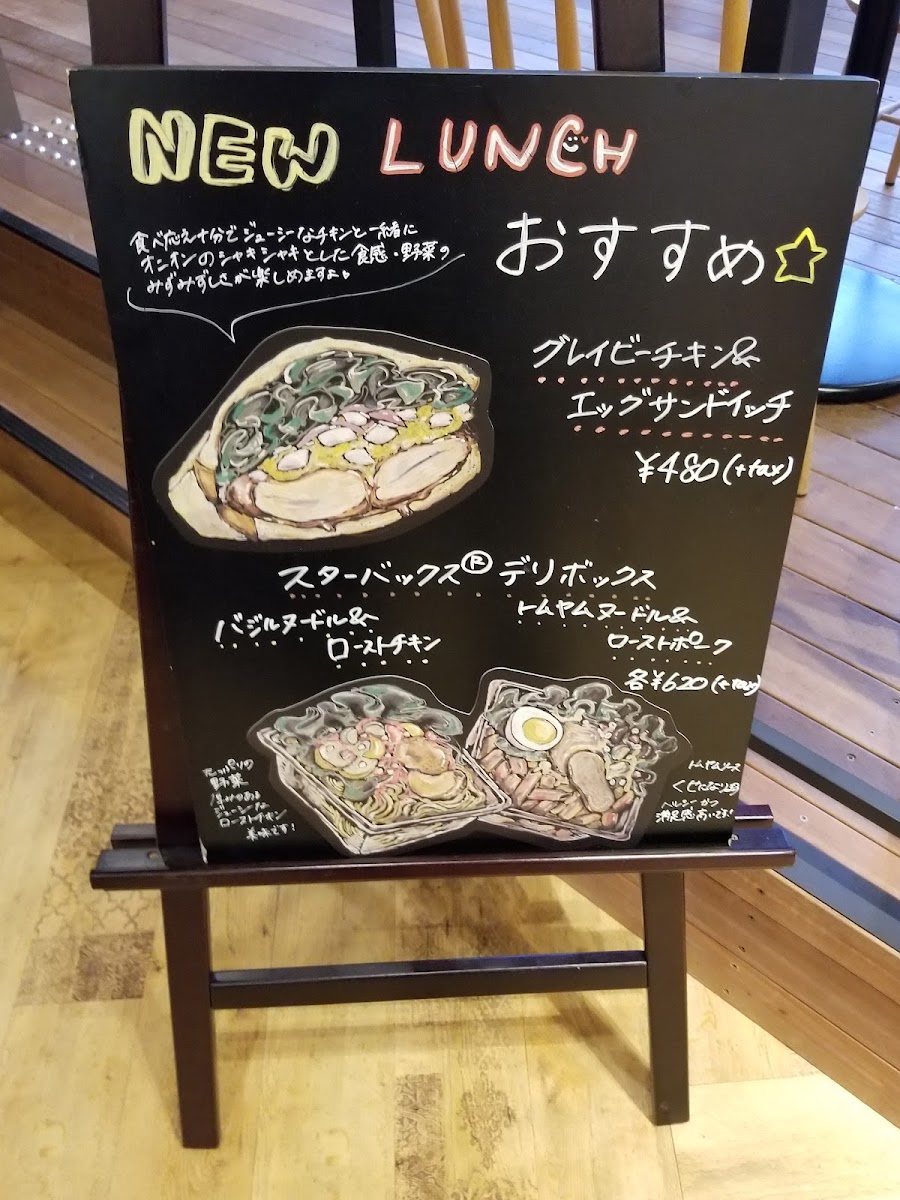 NEW LUNCH
おすすめ☆
食べ応え十分でジューシーなチキンと一緒に
オニオンのシャキシャキとした食感・野菜の
みずみずしさが楽しめますよ
グレイビーチキン&
エッグサンドイッチ
¥480(+tax)
スターバックス®デリボックス
バジルヌードル&
ローストチキン
トムヤムヌードル&
ローストポーク
各¥620(+tax)
たっぷりの
野菜
厚みのある
ジューシーな
ローストチキン
美味です!
トムヤムソース
ヘルシーかつ
満足感あいです!